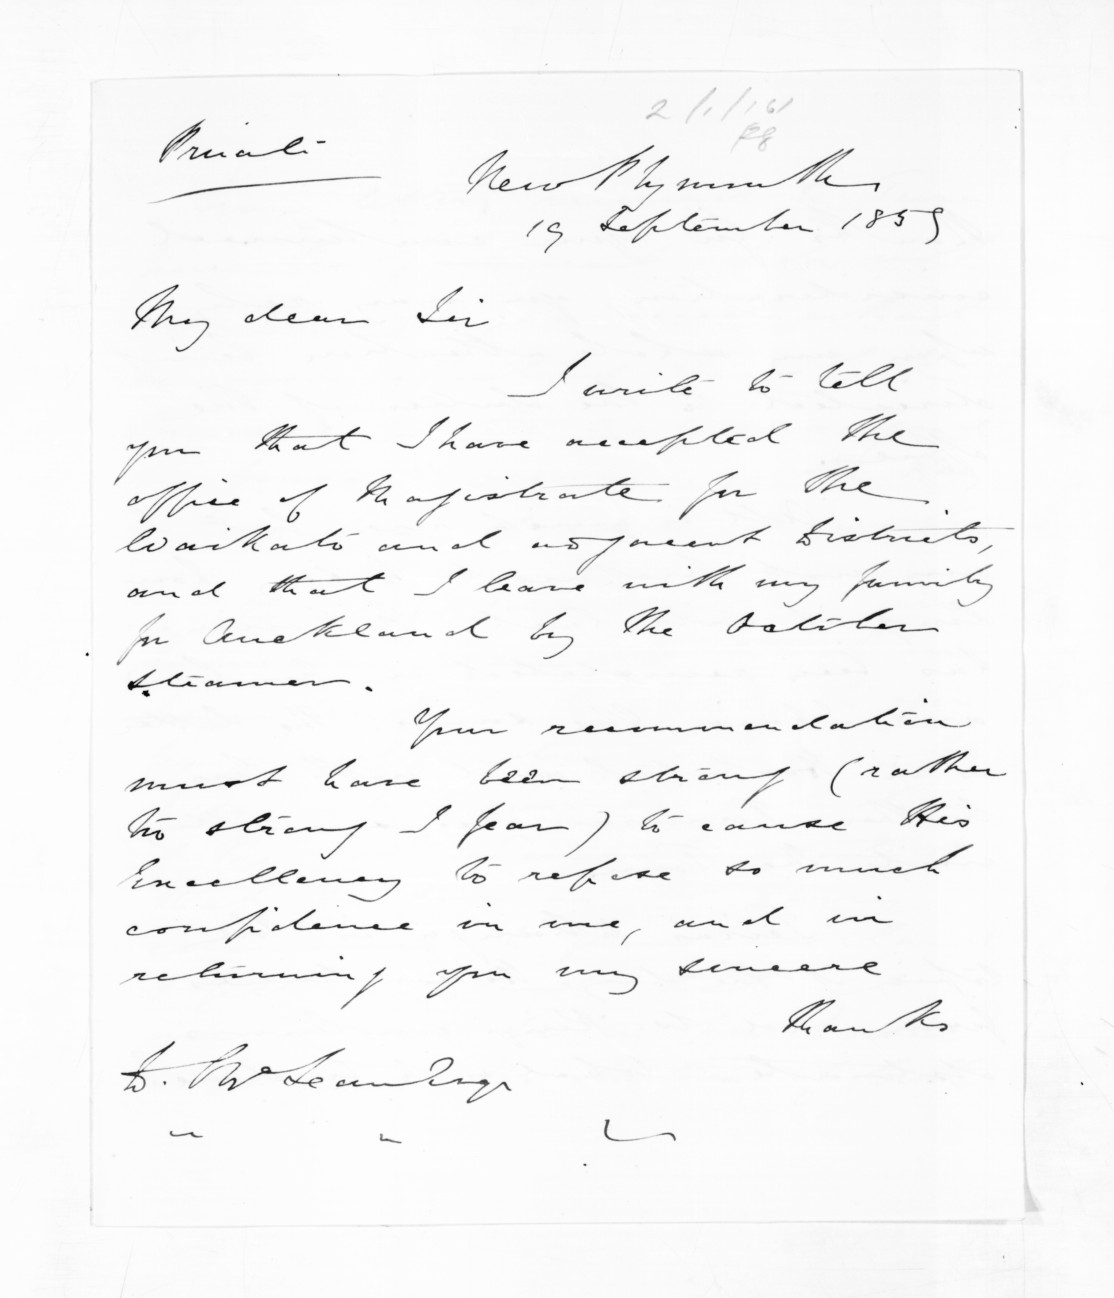 2/1/161
P8
Private
New Plymouth
19 September 1859
My dear Sir
I write to tell
you that I have accepted the
office of Magistrate for the
Waikato and adjacent Districts,
and that I leave with my family
for Auckland by the October
steamer.
Your recommendation
must have been strong (rather
too strong I fear) to cause His
Excellency to repose so much
confidence in me, and in
returning you my sincere
thanks
D. McLean Esqr
" "